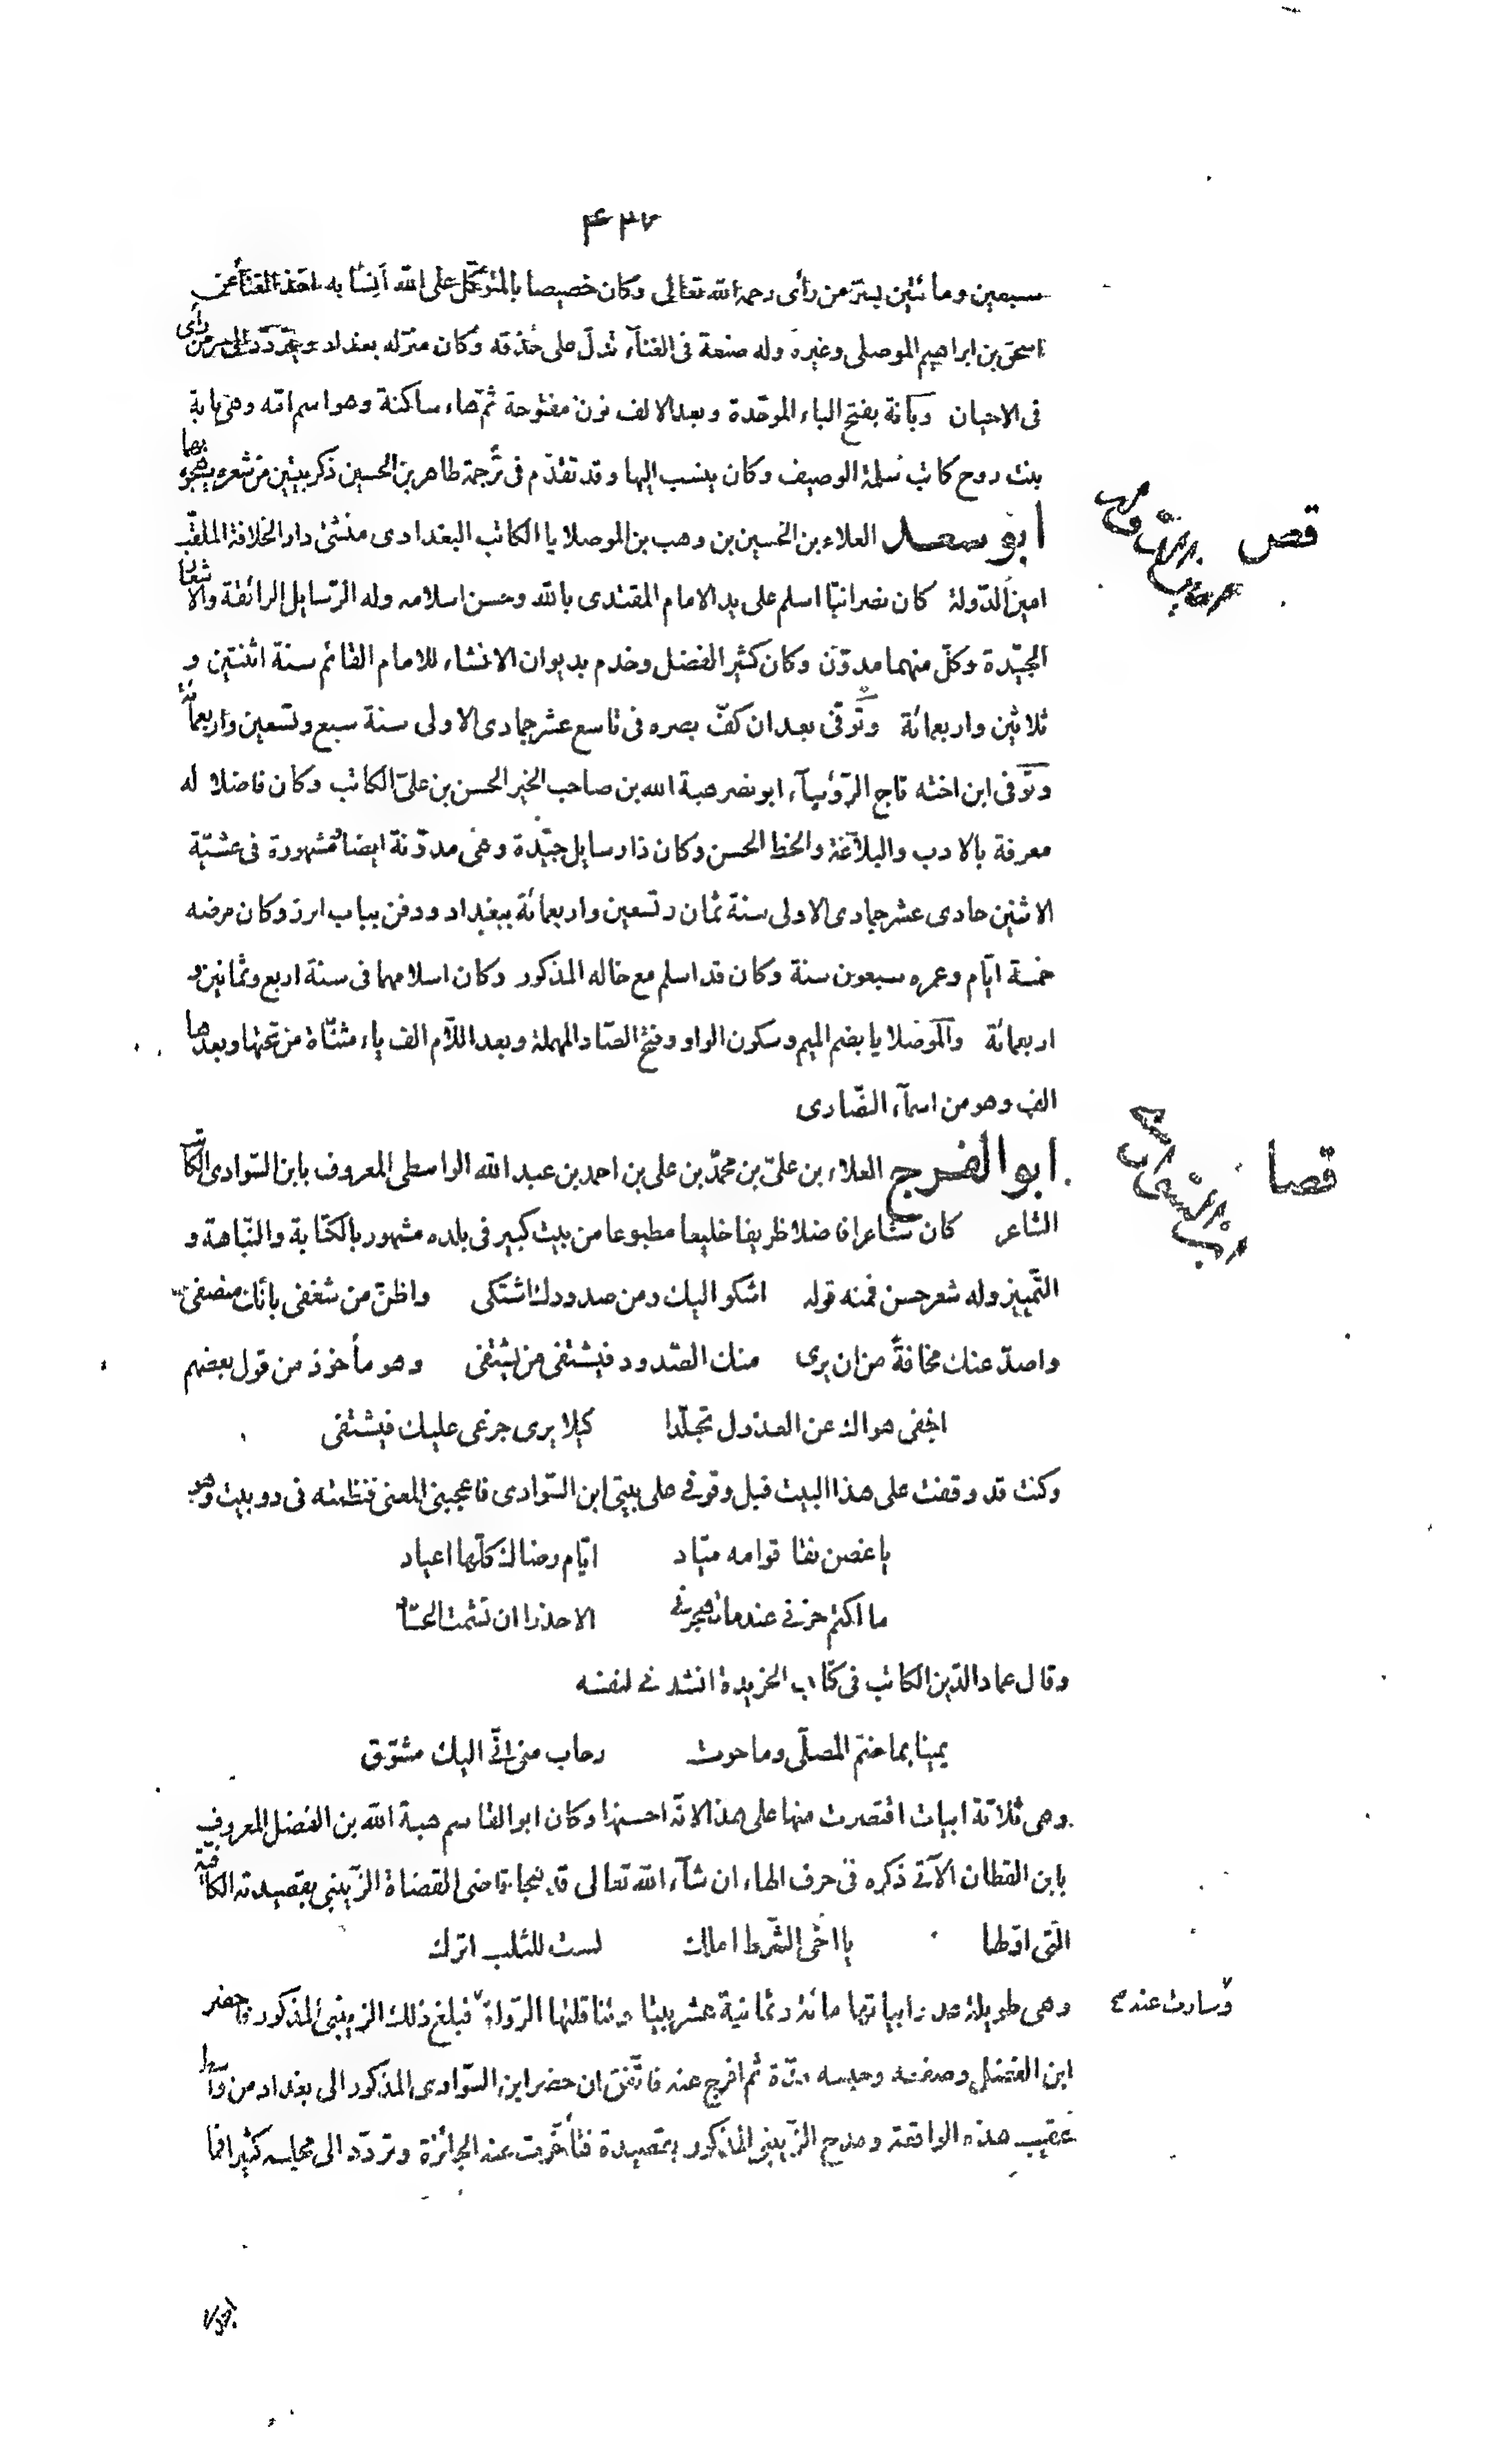 ۴۳۷
سبعين ومائتين بسرّ من رأى رحمه الله تعالى وكان خصيصا بالمتوكّل على الله آنسًا به اخذ الغنآء عن
اسحق بن ابراهيم الموصلى وغيره وله صنعة فى الغنآء تدلّ على حذقه وكان منزله ببغداد ويتردّد الى سرّ من رأى
فى الاحيان وبانة بفتح الباء الموحّدة وبعد الالف نون مفتوحة ثمّ هاء ساكنة وهو اسم امّه وهى بانة
بنت روح كاتب سلمة الوصيف وكان ينسب اليها وقد تقدّم فى ترجمة طاهر بن الحسين ذكر بيتين من شعره يهجوه بهما
ابو سعد العلاء بن الحسين بن وهب بن الموصلايا الكاتب البغدادى منشئ دار الخلافة الملقّب
قص
امين الدّولة كان نصرانيّا اسلم على يد الامام المقتدى بالله وحسن اسلامه وله الرّسايل الرائقة والاشعار
الجيّدة وكلّ منهما مدوّن وكان كثير الفضل وخدم بديوان الانشاء للامام القائم سنة اثنتين و
ثلاثين واربعمائة وتوفّى بعد ان كفّ بصره فى تاسع عشر جمادى الاولى سنة سبع وتسعين واربعمائة
وتوّفى ابن اخته تاج الرّؤسآء ابو نصر هبة الله بن صاحب الخبر الحسن بن علىّ الكاتب وكان فاضلا له
معرفة بالادب والبلاغة والخط الحسن وكان ذا رسايل جيّدة وهى مدوّنة ايضا مشهورة فى عشيّة
الاثنين حادى عشر جمادى الاولى سنة ثمان وتسعين واربعمائة ببغداد ودفن بباب ابرز وكان مرضه
خمسة ايّام وعمره سبعون سنة وكان قد اسلم مع خاله المذكور وكان اسلامهما فى سنة اربع وثمانين و
اربعمائة والموصلايا بضم الميم وسكون الواو وفتح الصّاد المهملة وبعد اللّام الف ياء مثنّاة من تحتها وبعدها
الف وهو من اسمآء النّصارى
ابو الفرج العلاء بن علىّ بن محمّد بن على بن احمد بن عبد الله الواسطى المعروف بابن السّوادى الكاتب
قصا
الشاعر كان شاعرا فاضلا ظريفا خليعا مطبوعا من بيت كبير فى بلده مشهور بالكتابة والنّباهة و
التّمييز وله شعر حسن فمنه قوله اشكو اليك ومن صدودك اشتكى واظنّ من شغفى بأنّك منصفى
واصدّ عنك مخافةً من ان يرى منك الصّدود فيشتفى من يشتفى وهو مأخوذ من قول بعضهم
اخفى هواك عن العذول تجلّدا كيلا يرى جزعى عليك فيشتفى
وكنت قد وقفت على هذا البيت قبل وقوفى على بيتى ابن السّوادى فاعجبنى المعنى فنظمته فى دوبيت وهو
يا غصن نقا قوامه ميّاد ايّام رضاك كلّها اعياد
ما اكتم حزنى عندما تهجرنى الا حذرا ان تشمت الحسّاد
وقال عماد الدّين الكاتب فى كتاب الخريدة انشدنى لنفسه
يمينا بما ضمّ المصلّى وما حوت رحاب منى انّى اليك مشوّق
وهى ثلاثة ابيات اقتصرت منها على هذا لانّه احسنها وكان ابو القاسم هبة الله بن الفضل المعروف
بابن القطان الآتى ذكره فى حرف الهاء ان شآء الله تعالى قد هجا قاضى القضاة الزّينبى بقصيدته الكافيّة
التى اوّلها يا اخى الشّرط املك لست للثلب اترك
وهى طويلة عدد ابياتها مائة وثمانية عشر بيتا وتناقلتها الرّواة فبلغ ذلك الزينبى المذكور فاحضر
وسارت عنه صح
ابن الفضل وصفعه وحبسه مدّة ثم افرج عنه فاتّفق ان حضر ابن السّوادى المذكور الى بغداد من واسط
عقيب هذه الواقعة ومدح الزّينبى المذكور بقصيدة فتأخّرت عنه الجائزة وتردّد الى مجلسه كثيرا فما